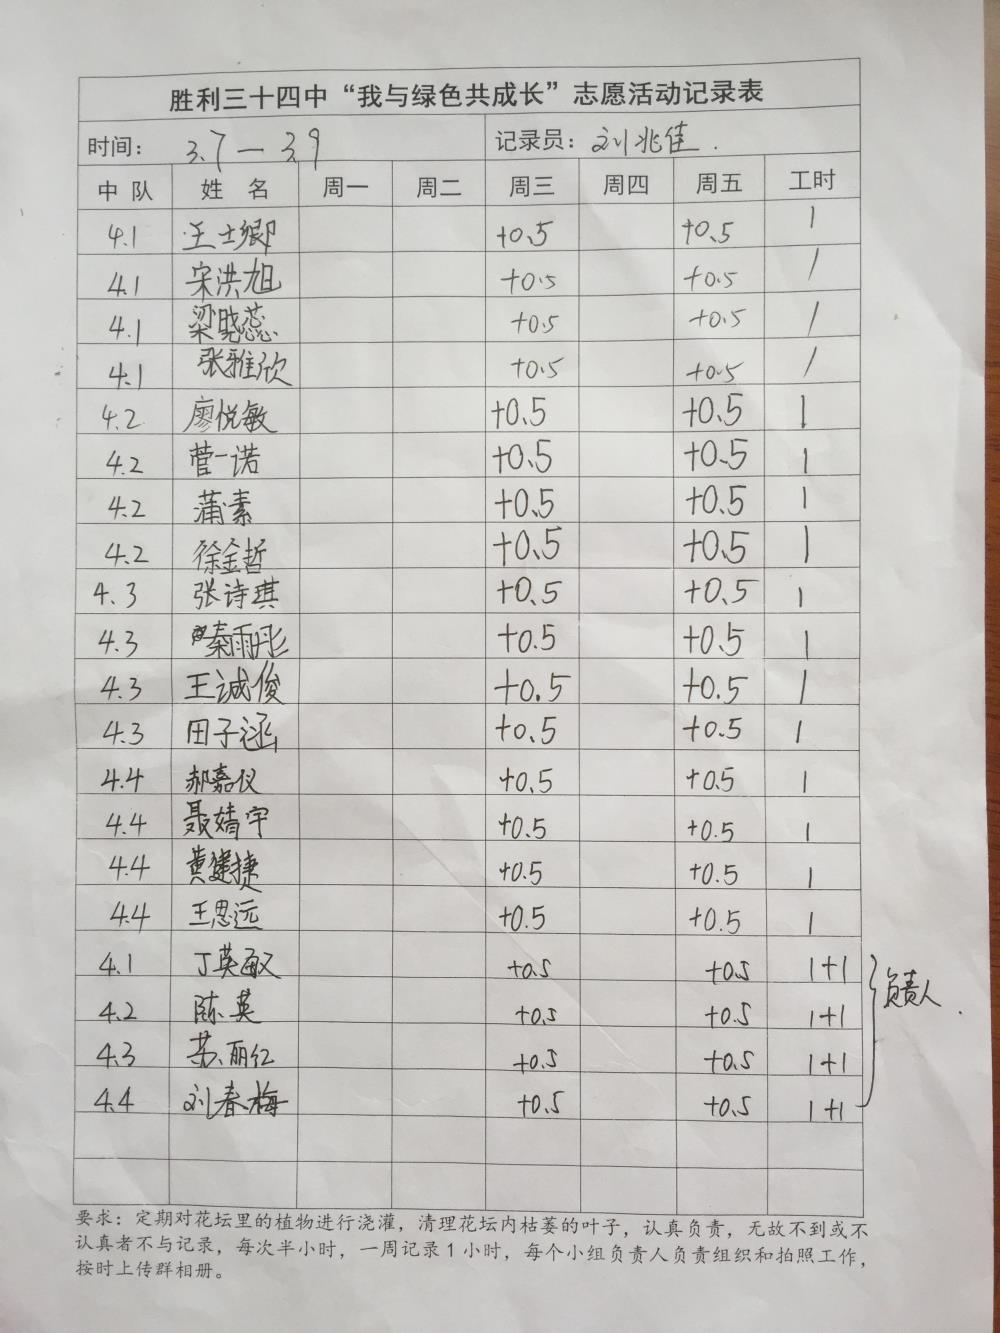 胜利三十四中“我与绿色共成长”志愿活动记录表
时间： 3.7—3.9 记录员：刘兆佳.
中队 姓名 周一 周二 周三 周四 周五 工时
4.1 王士卿 +0.5 +0.5 1
4.1 宋洪旭 +0.5 +0.5 1
4.1 梁晓蕊 +0.5 +0.5 1
4.1 张雅欣 +0.5 +0.5 1
4.2 廖悦敏 +0.5 +0.5 1
4.2 菅一诺 +0.5 +0.5 1
4.2 蒲素 +0.5 +0.5 1
4.2 徐金哲 +0.5 +0.5 1
4.3 张诗琪 +0.5 +0.5 1
4.3 秦雨彤 +0.5 +0.5 1
4.3 王诚俊 +0.5 +0.5 1
4.3 田子涵 +0.5 +0.5 1
4.4 郝嘉仪 +0.5 +0.5 1
4.4 聂婧宇 +0.5 +0.5 1
4.4 黄建捷 +0.5 +0.5 1
4.4 王思远 +0.5 +0.5 1
4.1 丁英敏 +0.5 +0.5 1+1
4.2 陈英 +0.5 +0.5 1+1 负责人.
4.3 苏丽红 +0.5 +0.5 1+1
4.4 刘春梅 +0.5 +0.5 1+1
要求：定期对花坛里的植物进行浇灌，清理花坛内枯萎的叶子，认真负责，无故不到或不
认真者不与记录，每次半小时，一周记录1小时，每个小组负责人负责组织和拍照工作，
按时上传群相册。